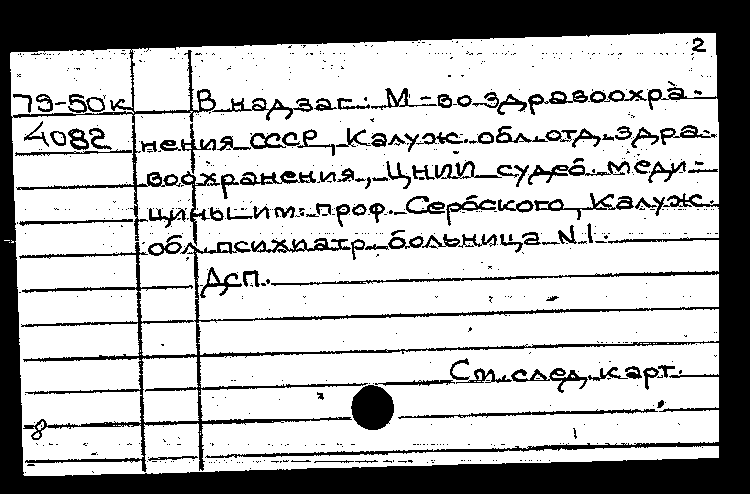 2
79-50к В надзаг.: М-во здравоохра-
4082 нения СССР, Калуж. обл. отд. здра-
воохранения, ЦНИИ судеб. меди-
цины им. проф. Сербского, Калуж.
обл. психиатр. больница N 1.
Дсп.
См. след. карт.
8